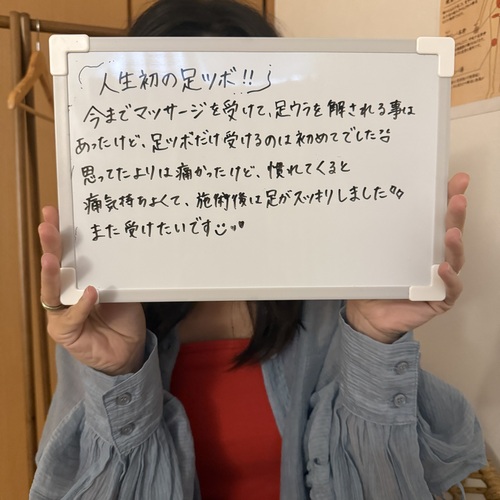 人生初の足ツボ!!
今までマッサージを受けて、足ウラを解される事は
あったけど、足ツボだけ受けるのは初めてでした
思ってたよりは痛かったけど、慣れてくると
痛気持ちよくて、施術後は足がスッキリしました
また受けたいです